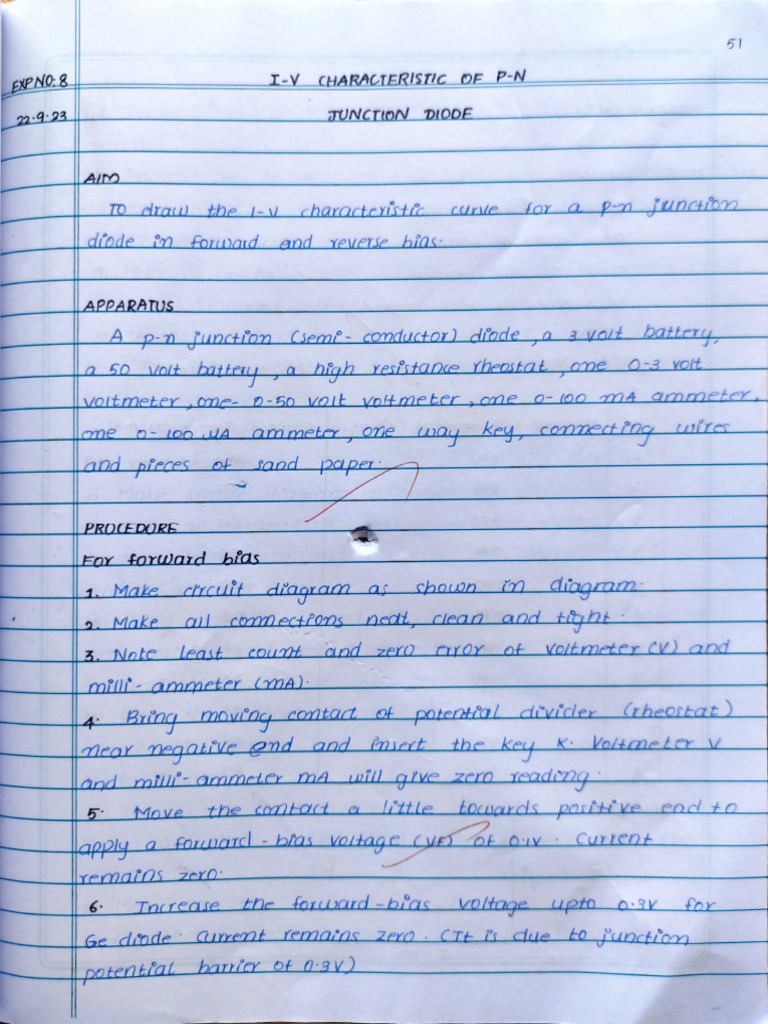 51
EXP NO: 8
I-V CHARACTERISTIC OF P-N
22.9.23
JUNCTION DIODE
AIM
To draw the I-V characteristic curve for a p-n junction
diode in forward and reverse bias.
APPARATUS
A p-n junction (semi-conductor) diode, a 3 volt battery,
a 50 volt battery, a high resistance rheostat, one 0-3 volt
voltmeter, one- 0-50 volt voltmeter, one 0-100 mA ammeter,
one 0-100 μA ammeter, one way key, connecting wires
and pieces of sand paper.
PROCEDURE
For forward bias
1. Make circuit diagram as shown in diagram.
2. Make all connections neat, clean and tight.
3. Note least count and zero error of voltmeter (V) and
milli-ammeter (mA).
4. Bring moving contact of potential divider (rheostat)
near negative end and insert the key K. Voltmeter V
and milli-ammeter mA will give zero reading.
5. Move the contact a little towards positive end to
apply a forward-bias voltage (VF) of 0.1V. Current
remains zero.
6. Increase the forward-bias voltage upto 0.3V for
Ge diode. Current remains zero. (It is due to junction
potential barrier of 0.3V)